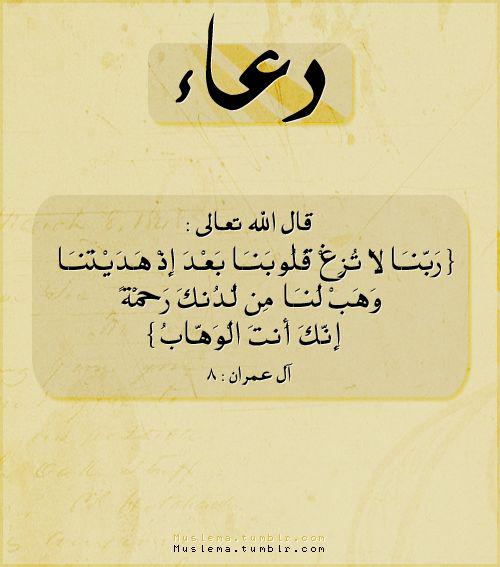 دعاء
قال الله تعالى :
{رَبّنَا لا تُزِغْ قُلُوبَنَا بَعْدَ إذْ هَدَيْتنَا
وَهَبْ لنَا مِن لدُنكَ رَحمْةً
إنّكَ أنتَ الوَهّابُ}
آل عمران : ٨
Muslema.tumblr.com
Muslema.tumblr.com